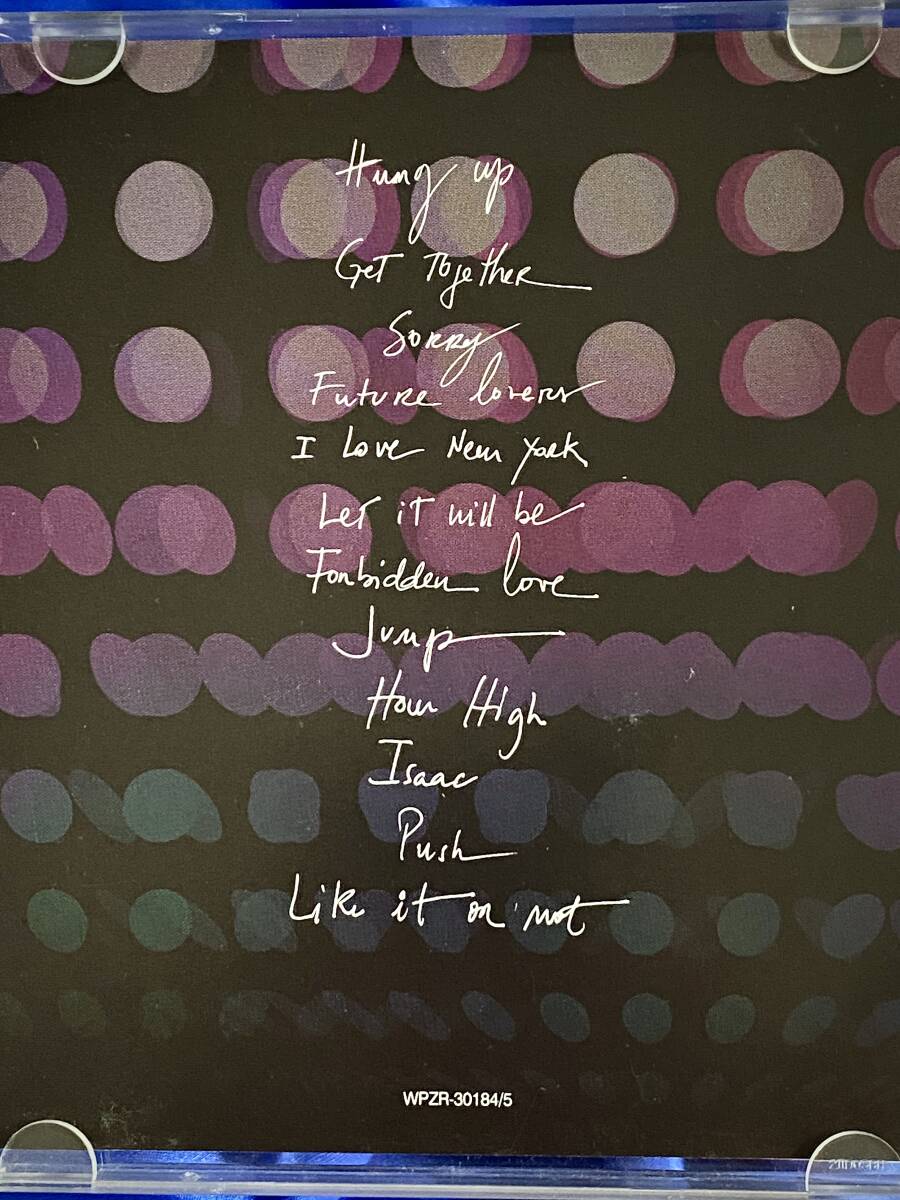 Hung up
Get Together
Sorry
Future lovers
I Love New York
Let it will be
Forbidden love
Jump
How High
Isaac
Push
Like it or not
WPZR-30184/5